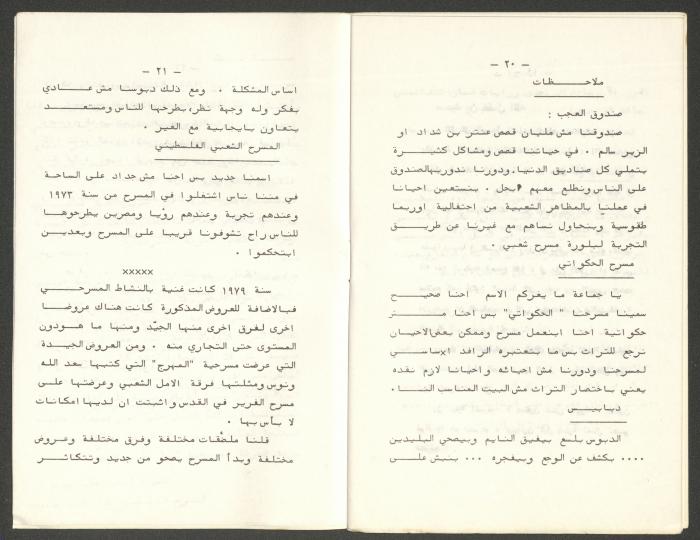 - ٢٠ -
ملاحظات
صندوق العجب :
صندوقنا مش مليان قصص عنتر بن شداد او
الزير سالم . في حياتنا قصص ومشاكل كثيرة
بتملي كل صناديق الدنيا.ودورنا ندور بهالصندوق
على الناس ونطلع معهم نبجل . بنستعين احيانا
في عملنا بالمظاهر الشعبية من احتفالية اوربما
طقوسية وبنحاول نساهم مع غيرنا عن طريق
التجربة لبلورة مسرح شعبي .
مسرح الحكواتي
يا جماعة ما يغركم الاسم احنا صحيح
سمينا مسرحنا " الحكواتي" بس احنا مش
حكواتية احنا ابنعمل مسرح وممكن بعض الاحيان
نرجع للتراث بس ما بنعتبره الرافد الاساسي
لمسرحنا ودورنا مش احيائه واحيانا لازم نقده
يعني باختصار التراث مش البيت المناسب النا .
دبابيس
الدبوس بلسع بيفيق النايم وبيصحي البليدين
.... بكشف عن الوجع وبيفجره ... بنبش على
- ٢١ -
اساس المشكلة . ومع ذلك دبوسنا مش عادي
بفكر وله وجهة نظر،بطرحها للناس ومستعد
يتعاون بايجابية مع الغير .
المسرح الشعبي الفلسطيني
اسمنا جديد بس احنا مش جداد على الساحة
في مننا ناس اشتغلوا في المسرح من سنة ١٩٧٣
وعندهم تجربة وعندهم رؤيا ومصرين يطرحوها
للناس راح تشوفونا قريبا على المسرح وبعدين
ابتحكموا .
xxxxx
سنة ١٩٧٩ كانت غنية بالنشاط المسرحي
فبالاضافة للعروض المذكورة كانت هناك عروضا
اخرى لفرق اخرى منها الجيّد ومنها ما هو دون
المستوى حتى التجاري منه . ومن العروض الجيدة
التي عرضت مسرحية "المهرج" التي كتبها سعد الله
ونوس ومثلتها فرقة الامل الشعبي وعرضتها على
مسرح الفرير في القدس واثبتت ان لديها امكانات
لا بأس بها .
قلنا ملصّقات مختلفة وفرق مختلفة وعروض
مختلفة وبدأ المسرح يصحو من جديد وتتكاثر